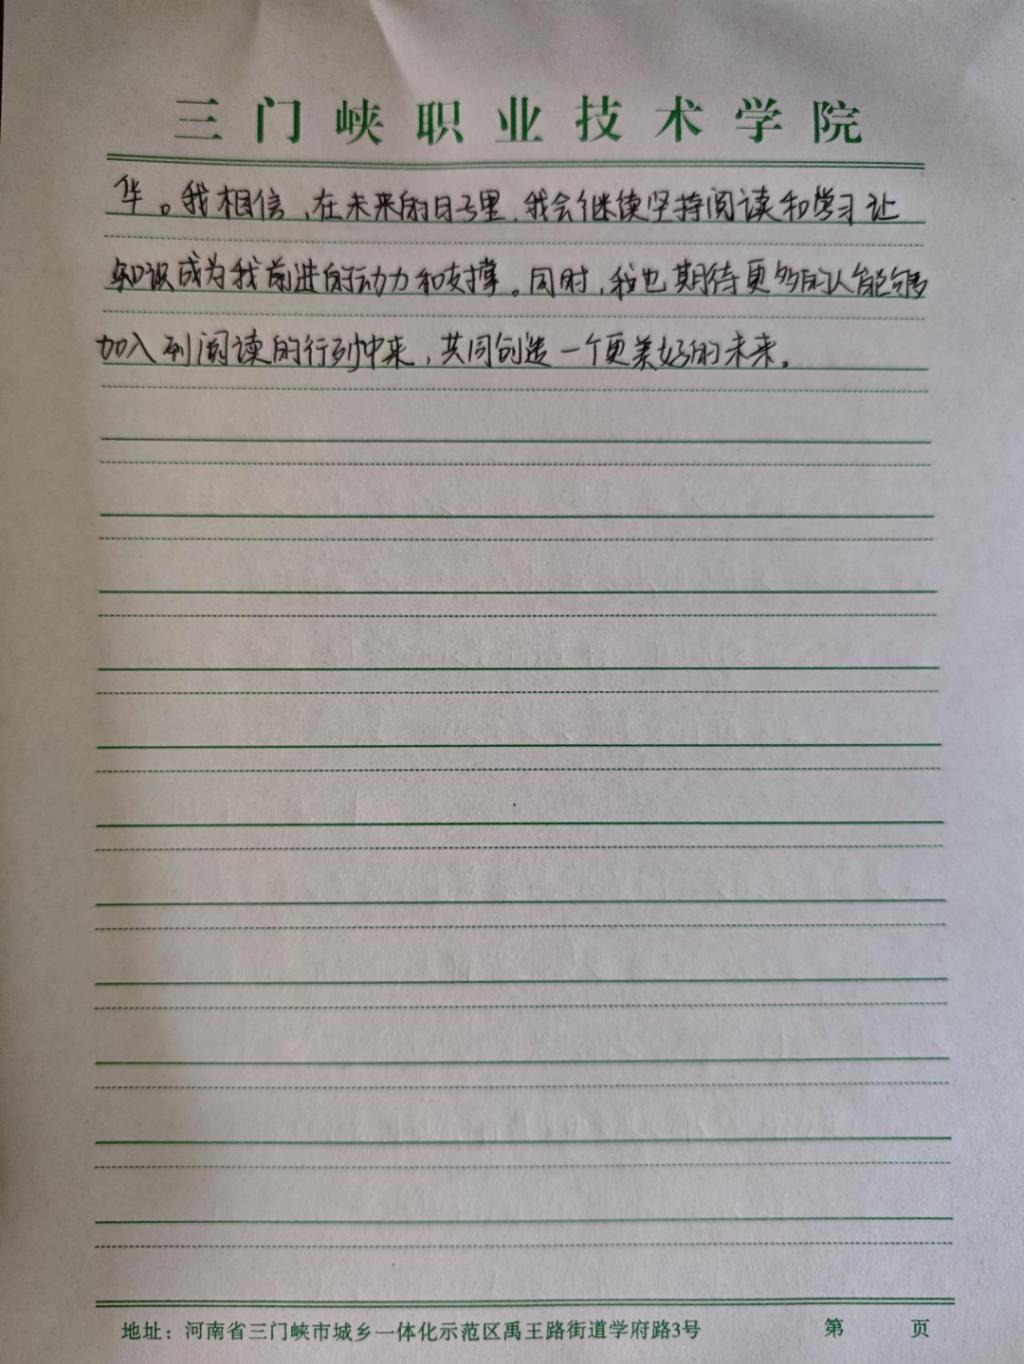 三门峡职业技术学院
华。我相信,在未来的日子里,我会继续坚持阅读和学习让
知识成为我前进的行动力和支撑。同时,我也期待更多的人能够
加入到阅读的行列中来,共同创造一个更美好的未来。
地址：河南省三门峡市城乡一体化示范区禹王路街道学府路3号 第 页